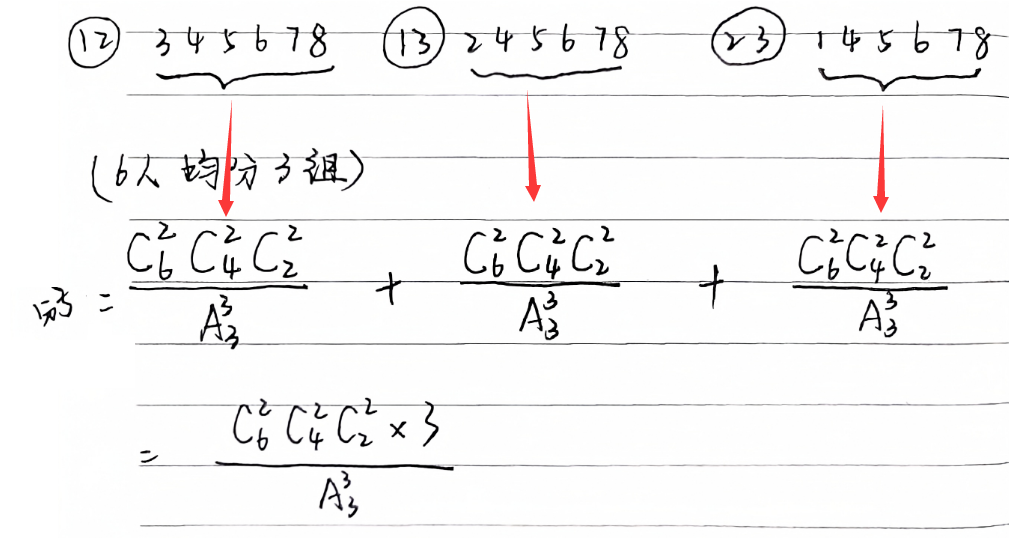 ⑫ 3 4 5 6 7 8 ⑬ 2 4 5 6 7 8 ㉓ 1 4 5 6 7 8
(6人均分3组)
分子 = C₆² C₄² C₂² / A₃³ + C₆² C₄² C₂² / A₃³ + C₆² C₄² C₂² / A₃³
= C₆² C₄² C₂² × 3 / A₃³